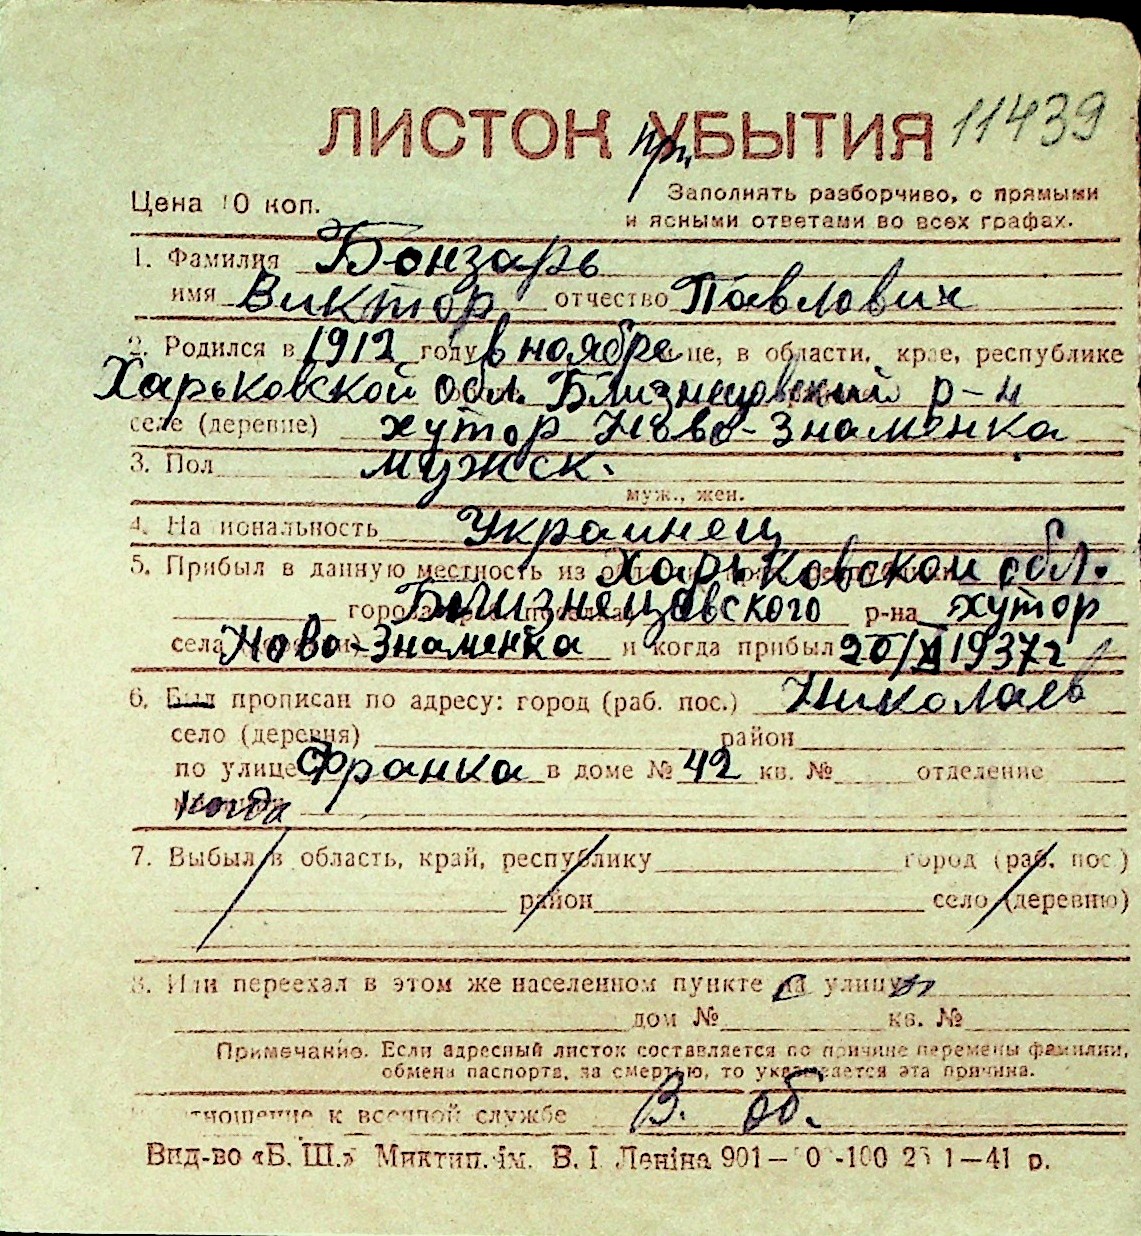 ЛИСТОК пр. УБЫТИЯ 11439
Цена 10 коп.
Заполнять разборчиво, с прямыми
и ясными ответами во всех графах.
1. Фамилия Бонзарь
имя Виктор отчество Павлович
2. Родился в 1912 году в ноябре це, в области, крае, республике
Харьковской обл. Близнецовский р-н
селе (деревне) хутор Ново-Знаменка
3. Пол мужск.
муж., жен.
4. Национальность Украинец
5. Прибыл в данную местность из Харьковской обл.
города Близнецовского р-на хутор
села Ново-Знаменка и когда прибыл 20/XI 1937 г
6. Был прописан по адресу: город (раб. пос.) Николаев
село (деревня) район
по улице Франка в доме № 42 кв. № отделение
когда
7. Выбыл в область, край, республику город (раб. пос.)
район село (деревню)
8. Или переехал в этом же населенном пункте улицу
дом № кв. №
Примечание. Если адресный листок составляется по причине перемены фамилии,
обмена паспорта, за смертью, то указывается эта причина.
Отношение к военной службе В. об.
Вид-во «Б. Ш.» Миктип. ім. В. І. Леніна 901— -100 1—41 р.